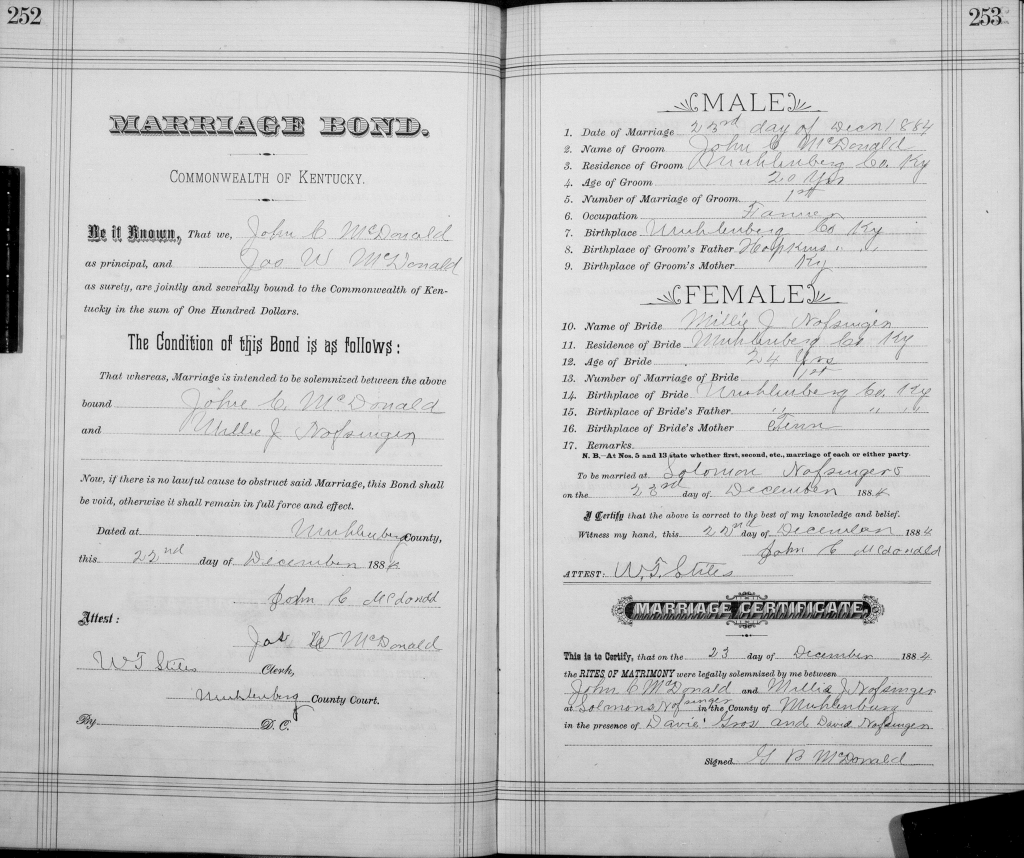 252
MARRIAGE BOND.
COMMONWEALTH OF KENTUCKY.
Be it Known, That we, John C McDonald
as principal, and Jas W McDonald
as surety, are jointly and severally bound to the Commonwealth of Ken-
tucky in the sum of One Hundred Dollars.
The Condition of this Bond is as follows:
That whereas, Marriage is intended to be solemnized between the above
bound John C. McDonald
and Millie J Nofsinger
Now, if there is no lawful cause to obstruct said Marriage, this Bond shall
be void, otherwise it shall remain in full force and effect.
Dated at Muhlenberg County,
this 22nd day of December 1884
John C McDonald
Attest:
Jas W McDonald
W T Stiles Clerk,
Muhlenberg County Court.
By D. C.
253
MALE
1. Date of Marriage 23rd day of Decr 1884
2. Name of Groom John C McDonald
3. Residence of Groom Muhlenberg Co. Ky
4. Age of Groom 20 Yrs
5. Number of Marriage of Groom 1st
6. Occupation Farmer
7. Birthplace Muhlenberg Co Ky
8. Birthplace of Groom's Father Hopkins " "
9. Birthplace of Groom's Mother Ky
FEMALE
10. Name of Bride Millie J Nofsinger
11. Residence of Bride Muhlenberg Co Ky
12. Age of Bride 24 Yrs
13. Number of Marriage of Bride 1st
14. Birthplace of Bride Muhlenberg Co. Ky
15. Birthplace of Bride's Father " " "
16. Birthplace of Bride's Mother Tenn
17. Remarks
N. B.—At Nos. 5 and 13 state whether first, second, etc., marriage of each or either party.
To be married at Solomon Nofsingers
on the 23rd day of December 1884
I Certify that the above is correct to the best of my knowledge and belief.
Witness my hand, this 22nd day of December 1884
John C McDonald
ATTEST: W. T. Stiles
MARRIAGE CERTIFICATE.
This is to Certify, that on the 23 day of December 1884
the RITES OF MATRIMONY were legally solemnized by me between
John C McDonald and Millie J Nofsinger
at Solomons Nofsinger in the County of Muhlenburg
in the presence of Davie Gros and David Nofsinger
Signed G B McDonald